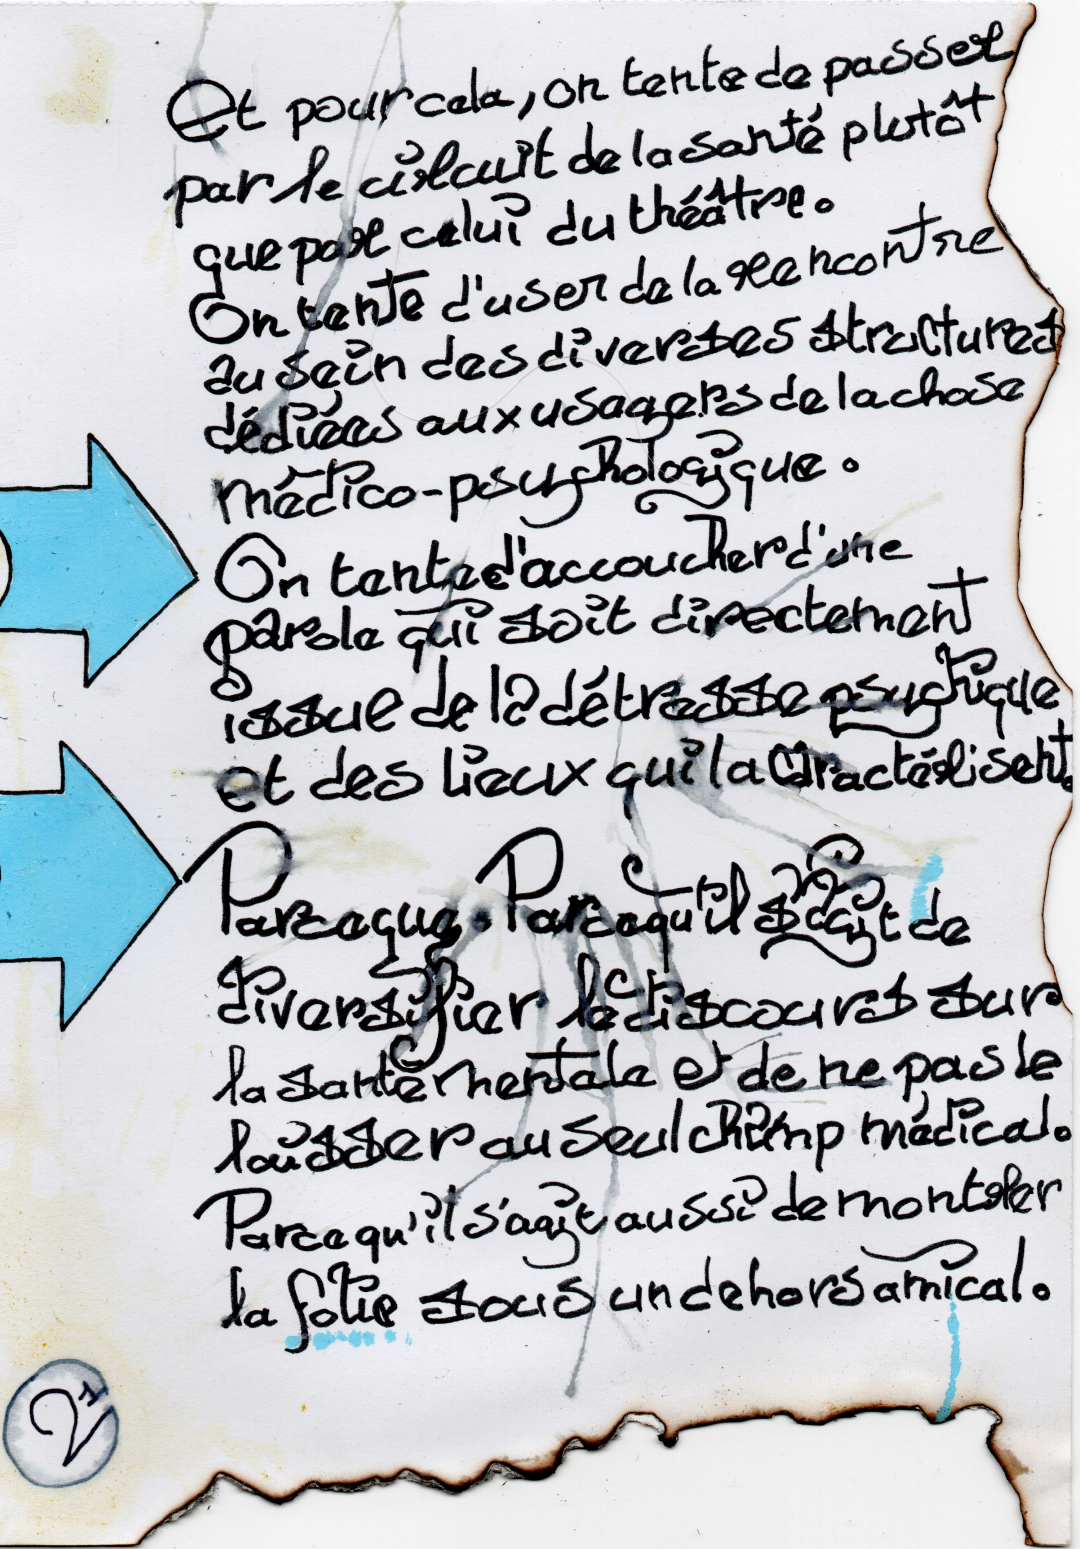 Et pour cela, on tente de passer
par le circuit de la santé plutôt
que par celui du théâtre.
On tente d'user de la rencontre
au sein des diverses structures
dédiées aux usagers de la chose
médico-psychologique.
On tente d'accoucher d'une
parole qui soit directement
issue de la détresse psychique
et des lieux qui la caractérisent.
Parce que. Parce qu'il s'agit de
diversifier le discours sur
la santé mentale et de ne pas le
laisser au seul champ médical.
Parce qu'il s'agit aussi de montrer
la folie sous un dehors amical.
21